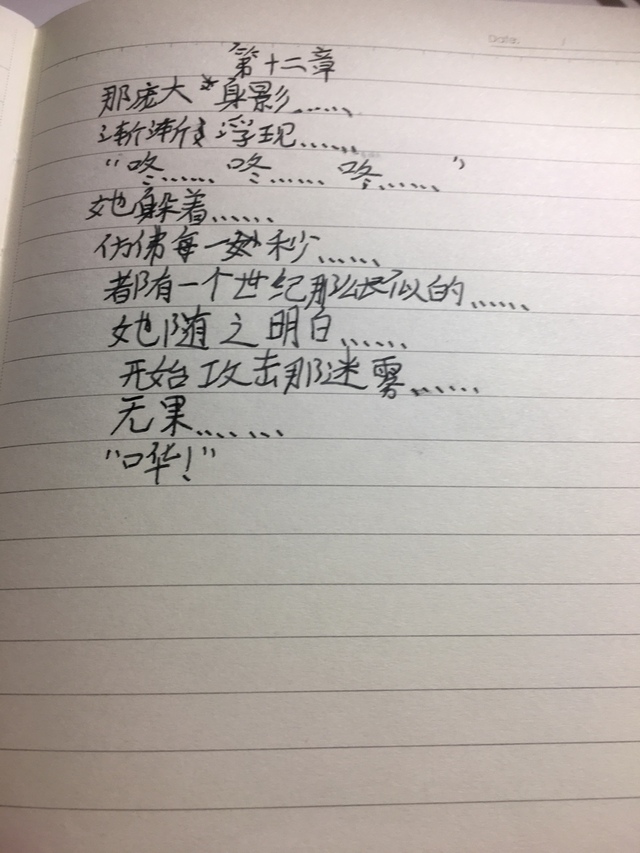 Date: /
第十二章
那庞大身影……
渐渐浮现……
“咚…… 咚…… 咚……”
她躲着……
仿佛每一秒……
都有一个世纪那么长似的……
她随之明白……
开始攻击那迷雾……
无果……
“哗！”